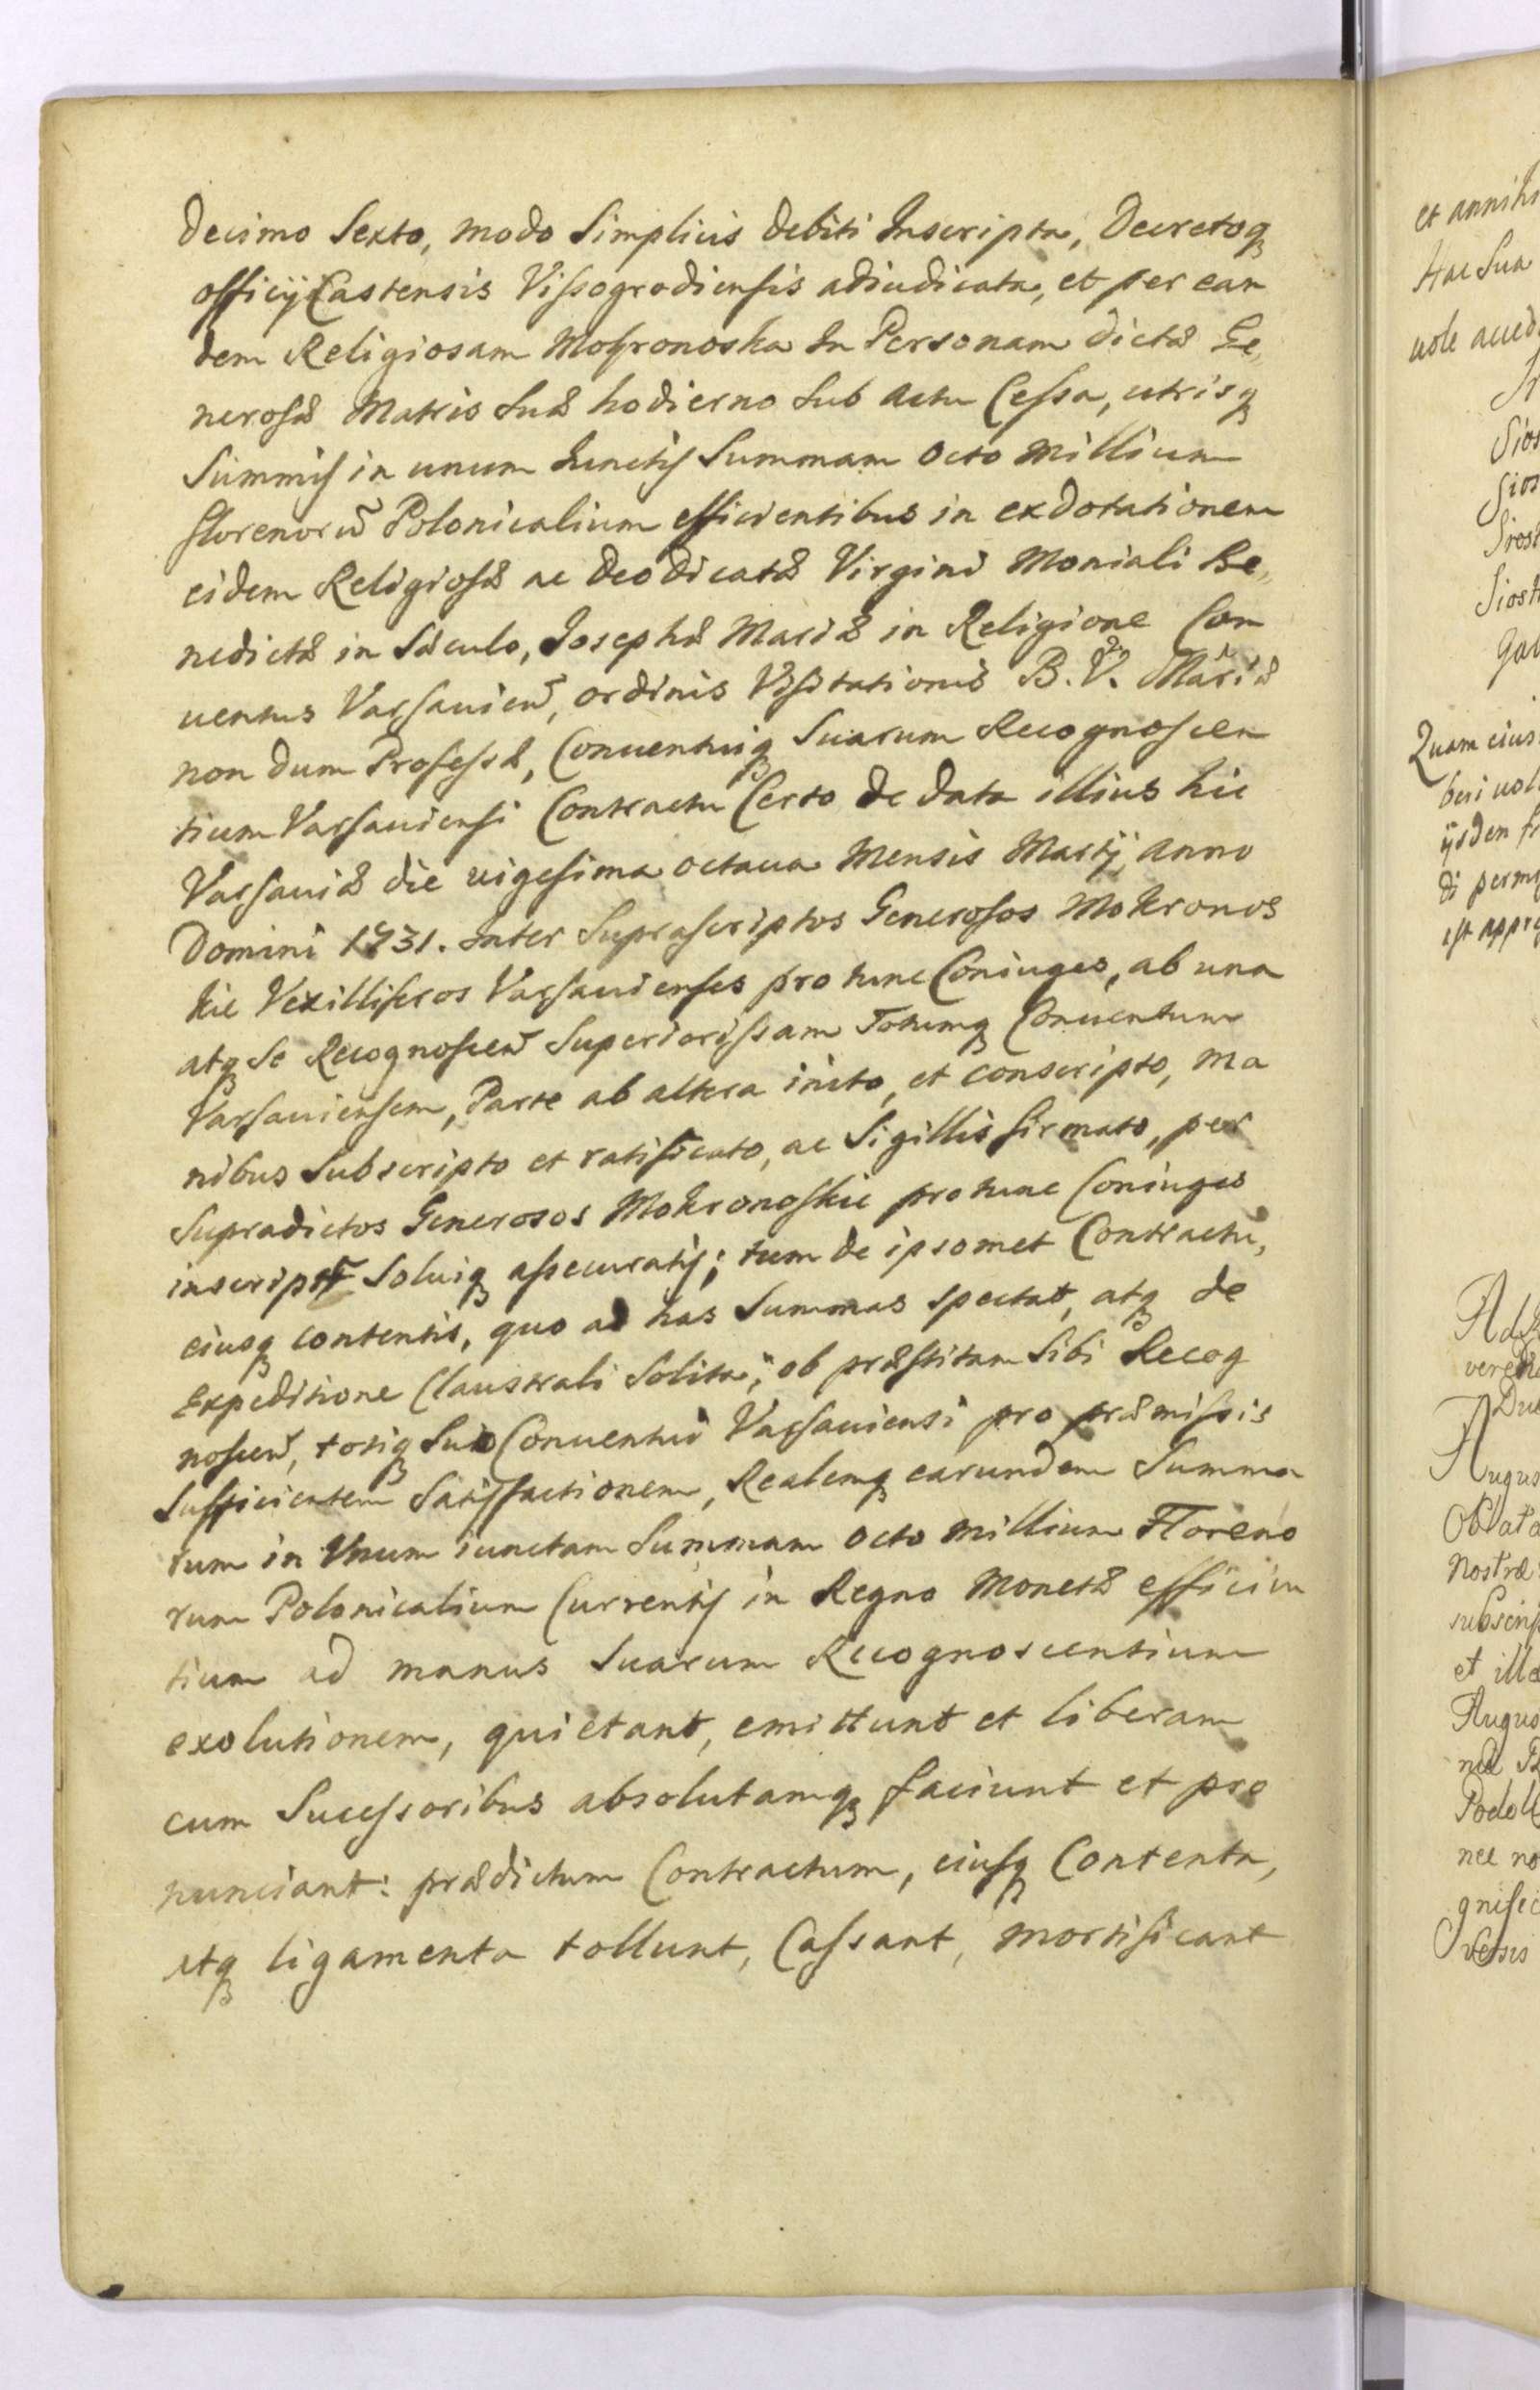 Decimo Sexto, modo Simplicis debiti Inscripta, Decretoq́₃
officij Castensis Vissogrodiensis adiudicata, et per ean
dem Religiosam Mokronoska In Personam dictæ Ge„
nerosæ Matris Suæ hodierno Sub Actu Cessa, utrisq₃
Summis in unum Iunctis Summam Octo Millium
florenorũ Polonicalium efficientibus in exdotationem
eidem Religiosæ ac Deo dicatæ Virgini Moniali Be„
nedictæ in Sæculo, Josephæ Mariæ in Religione Con
uentus Varsauien̄, ordinis Visitationis B. V. Mariæ
non dum Professæ, Conuentuiq₃ Suarum Recognoscen
tium Varsauiensi Contractu Certo de data illius hic
Varsauiæ die uigesima octaua Mensis Martij, Anno
Domini 1731. Inter Suprascriptos Generosos Mokronos
kie Vexilliferos Varsauienses pro tunc Coniuges, ab una
atq₃ Se Recognoscen̄ Superiorissam Totumq₃ Conuentum
Varsauiensem, Parte ab altera inito, et conscripto, ma
nibus Subscripto et ratificato, ac Sigillis firmato, per
Supradictos Generosos Mokronoskie pro tunc Coniuges
Soluiq₃ assecuratis; tum de ipsomet Contractu,
eiusq₃ contentis, quo ad has Summas spectat, atq₃ de
Expeditione Claustrali Solita; ob præstitam Sibi Recog
noscen̄, totiq₃ Suo Conuentui Varsauiensi pro præmissis
Sufficientem Satisfactionem, Realemq₃ earundem Summa
rum in Vnum iunctam Summam Octo Millium Floreno
rum Polonicalium Currentis in Regno Monetæ efficien
tium ad manus Suarum Recognoscentium
exolutionem, quietant, emittunt et liberam
cum Sucessoribus absolutamq₃ faciunt et pro
nunciant: prædictum Contractum, eiusq₃ Contenta,
atq₃ ligamenta tollunt, Cassant, mortificant
et annihi
Hac Sua
Quam eius
Augus
Oblata
Nostræ
et illa